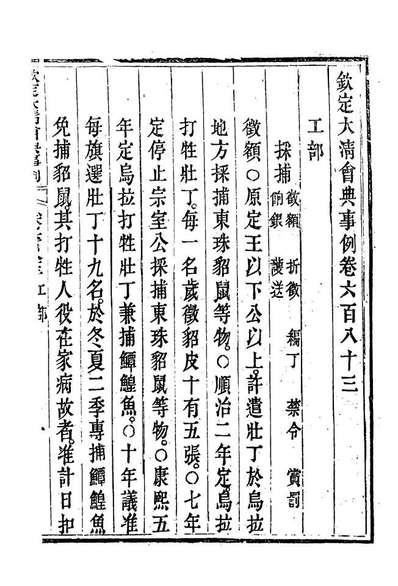 欽定大清會典事例卷六百八十三
工部
採捕 徵額 折徵 編丁 禁令 賞罰
餉銀 護送
徵額○原定王以下公以上。許遣壯丁於烏拉
地方採捕東珠貂鼠等物。○順治二年定烏拉
打牲壯丁。每一名歲徵貂皮十有五張。○七年
定停止宗室公採捕東珠貂鼠等物。○康熙五
年定烏拉打牲壯丁兼捕鱏鰉魚。○十年議准
每旗選壯丁十九名。於冬夏二季專捕鱏鰉魚
免捕貂鼠。其打牲人役在家病故者。准計日扣